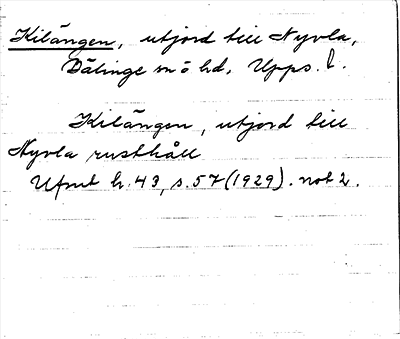 Kilängen, utjord till Nyvla,
Bälinge sn o hd, Upps. l.
Kilängen, utjord till
Nyvla rusthåll
Ufmt h. 43, s. 57 (1929). not 2.